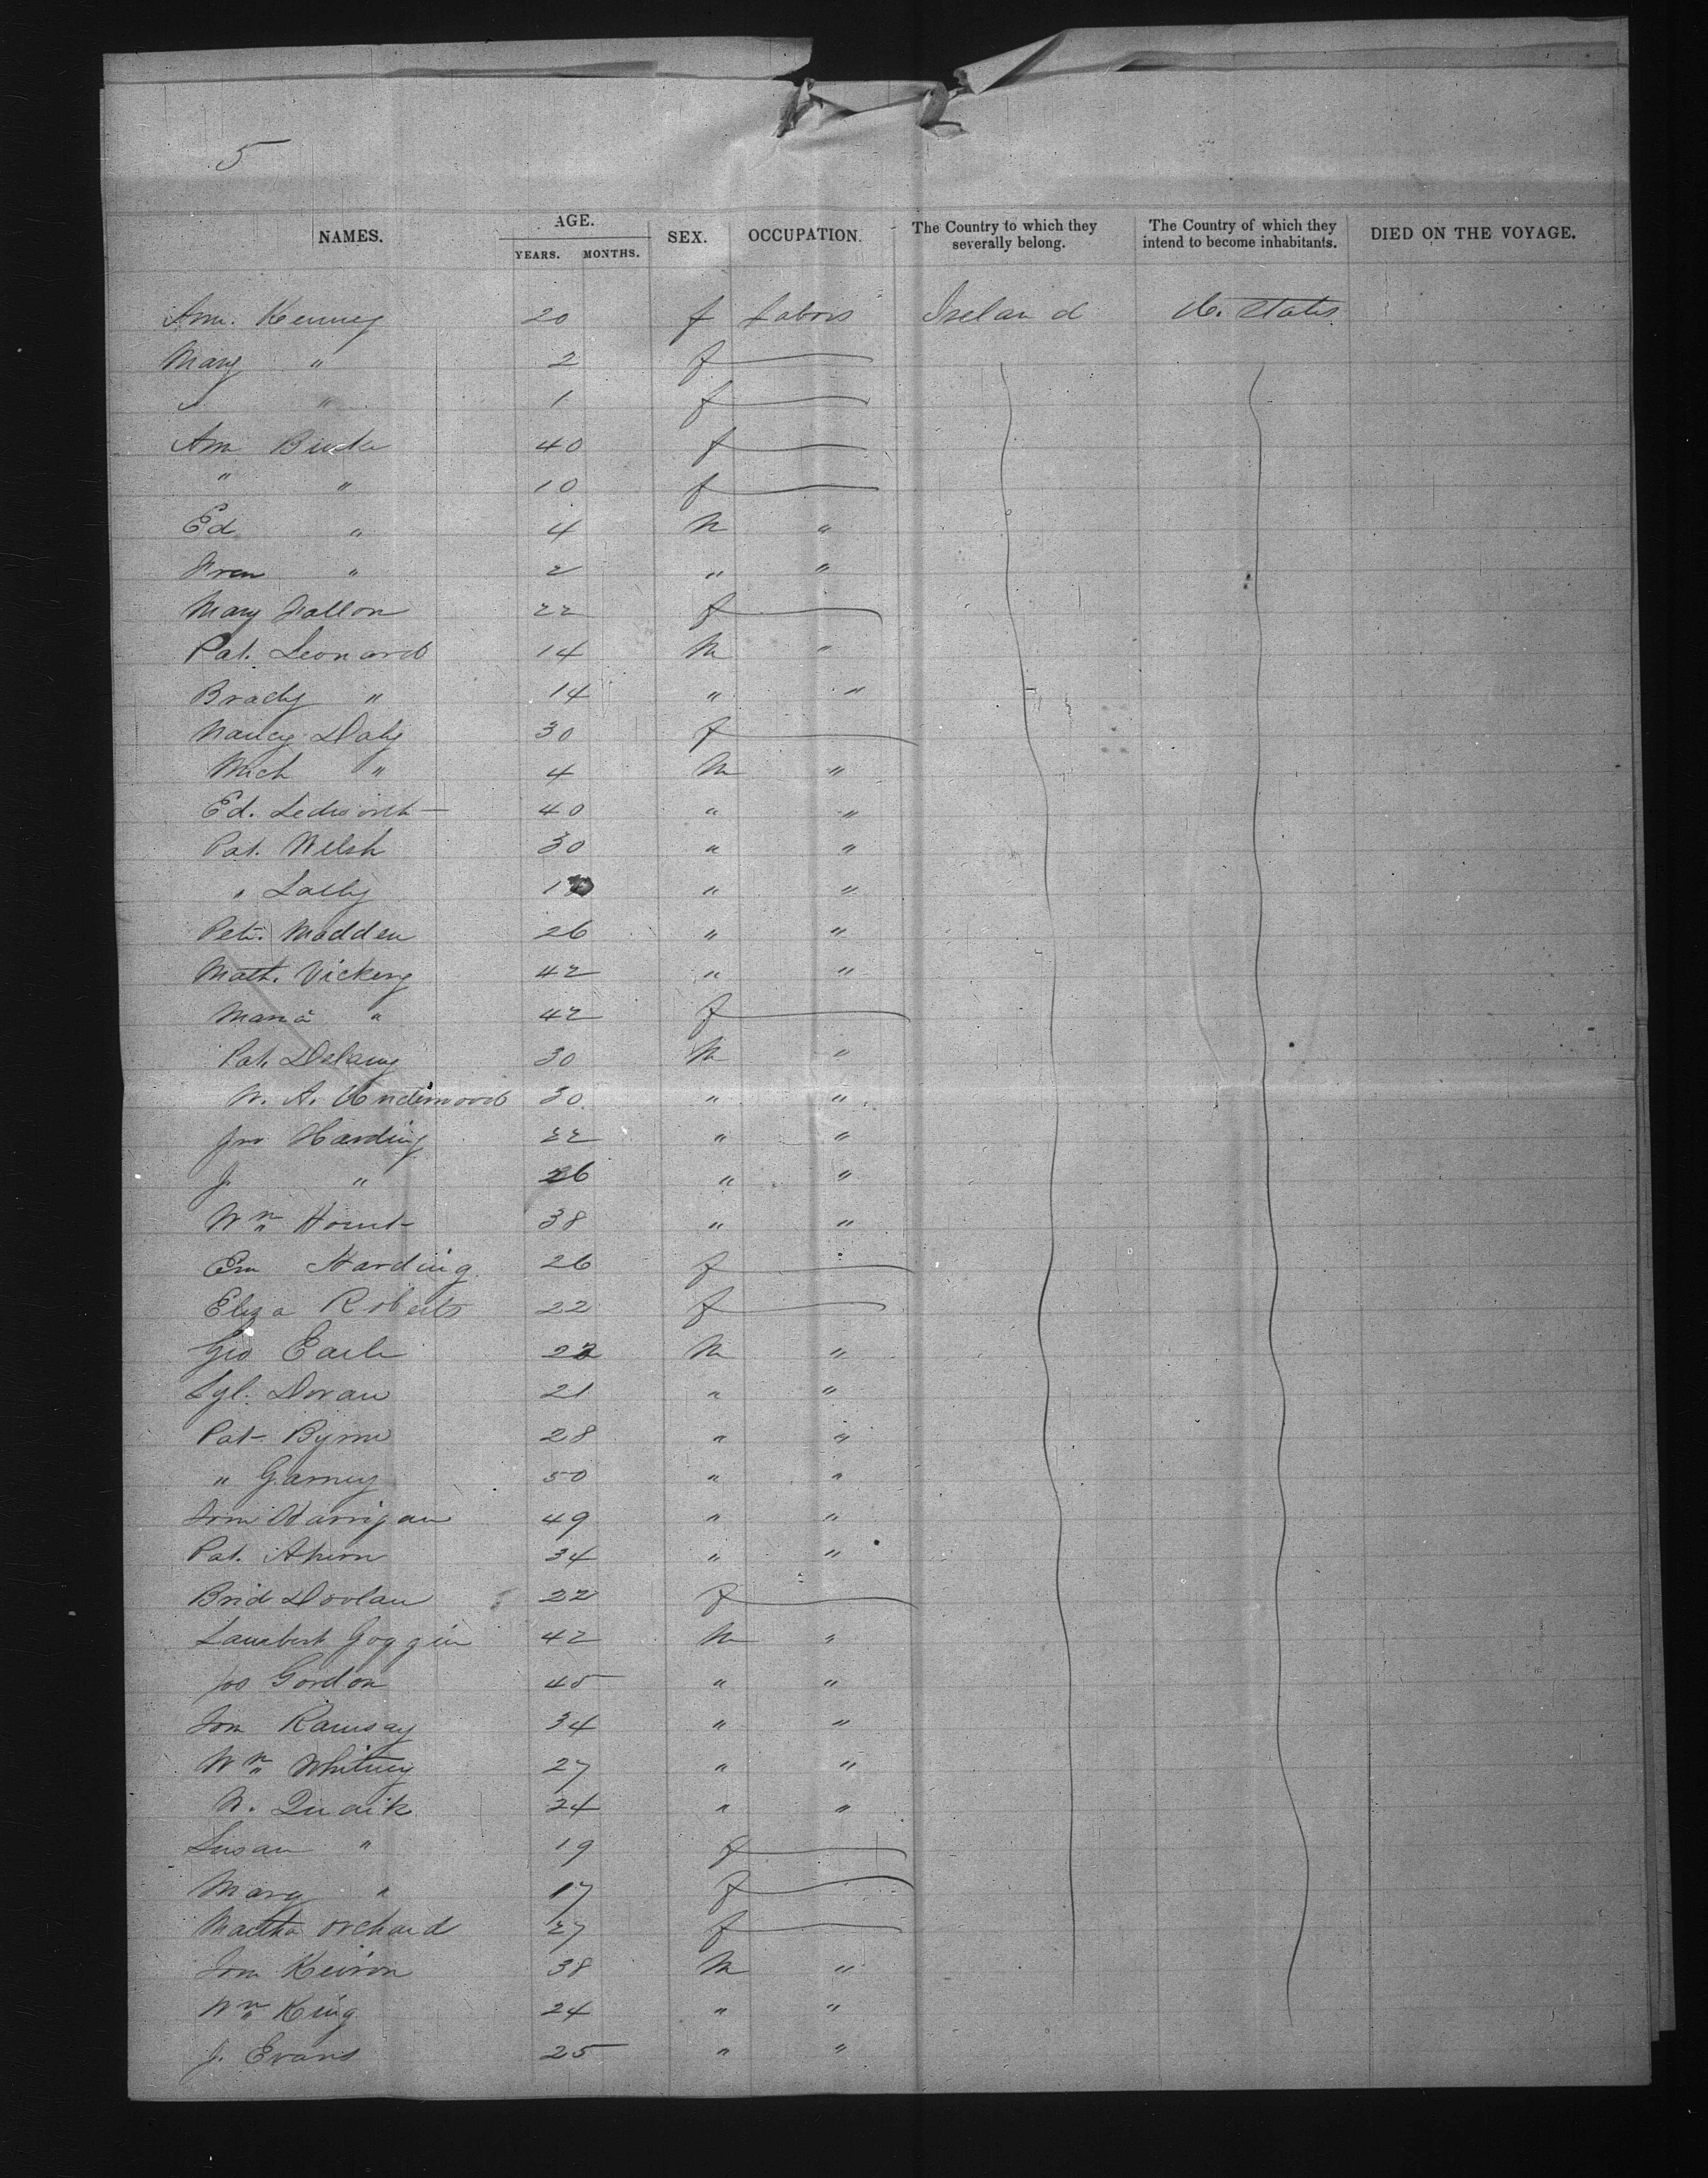 5
NAMES. AGE. YEARS. MONTHS. SEX. OCCUPATION. The Country to which they severally belong. The Country of which they intend to become inhabitants. DIED ON THE VOYAGE.
Ann. Kenney 20 f Labors Ireland U. States
Mary " 2 f
" 1 f
Ann Burke 40 f
" " 10 f
Ed " 4 M "
" 2 " "
Mary Fallon 22 f
Pat. Leonard 14 M "
Brady " 14 " "
Nancy Daly 30 f
Mich " 4 M "
Ed. Ledworth 40 " "
Pat. Welsh 30 " "
" Lally " "
Pet. Madden 26 " "
Math. Vickery 42 " "
Maria " 42 f
Pat. Delany 30 M "
W. A. Underwood 30 " "
Jno Harding 22 " "
J. " 26 " "
Wm Hount 38 " "
Em Harding 26 f
Eliza Roberts 22 f
Geo Earle 22 M "
Syl. Doran 21 " "
Pat Byrne 28 " "
" Garney 50 " "
Tom Harrigan 49 " "
Pat. Ahern 34 " "
Brid Doolan 22 f
Lambert Goggin 42 M "
Jos Gordon 45 " "
Tom Ramsay 34 " "
Wm Whitney 27 " "
W. Quaik 24 " "
Susan " 19 f
Mary " 17 f
Martha Orchard 27 f
Tom Keiron 38 M "
Wm King 24 " "
J. Evans 25 " "